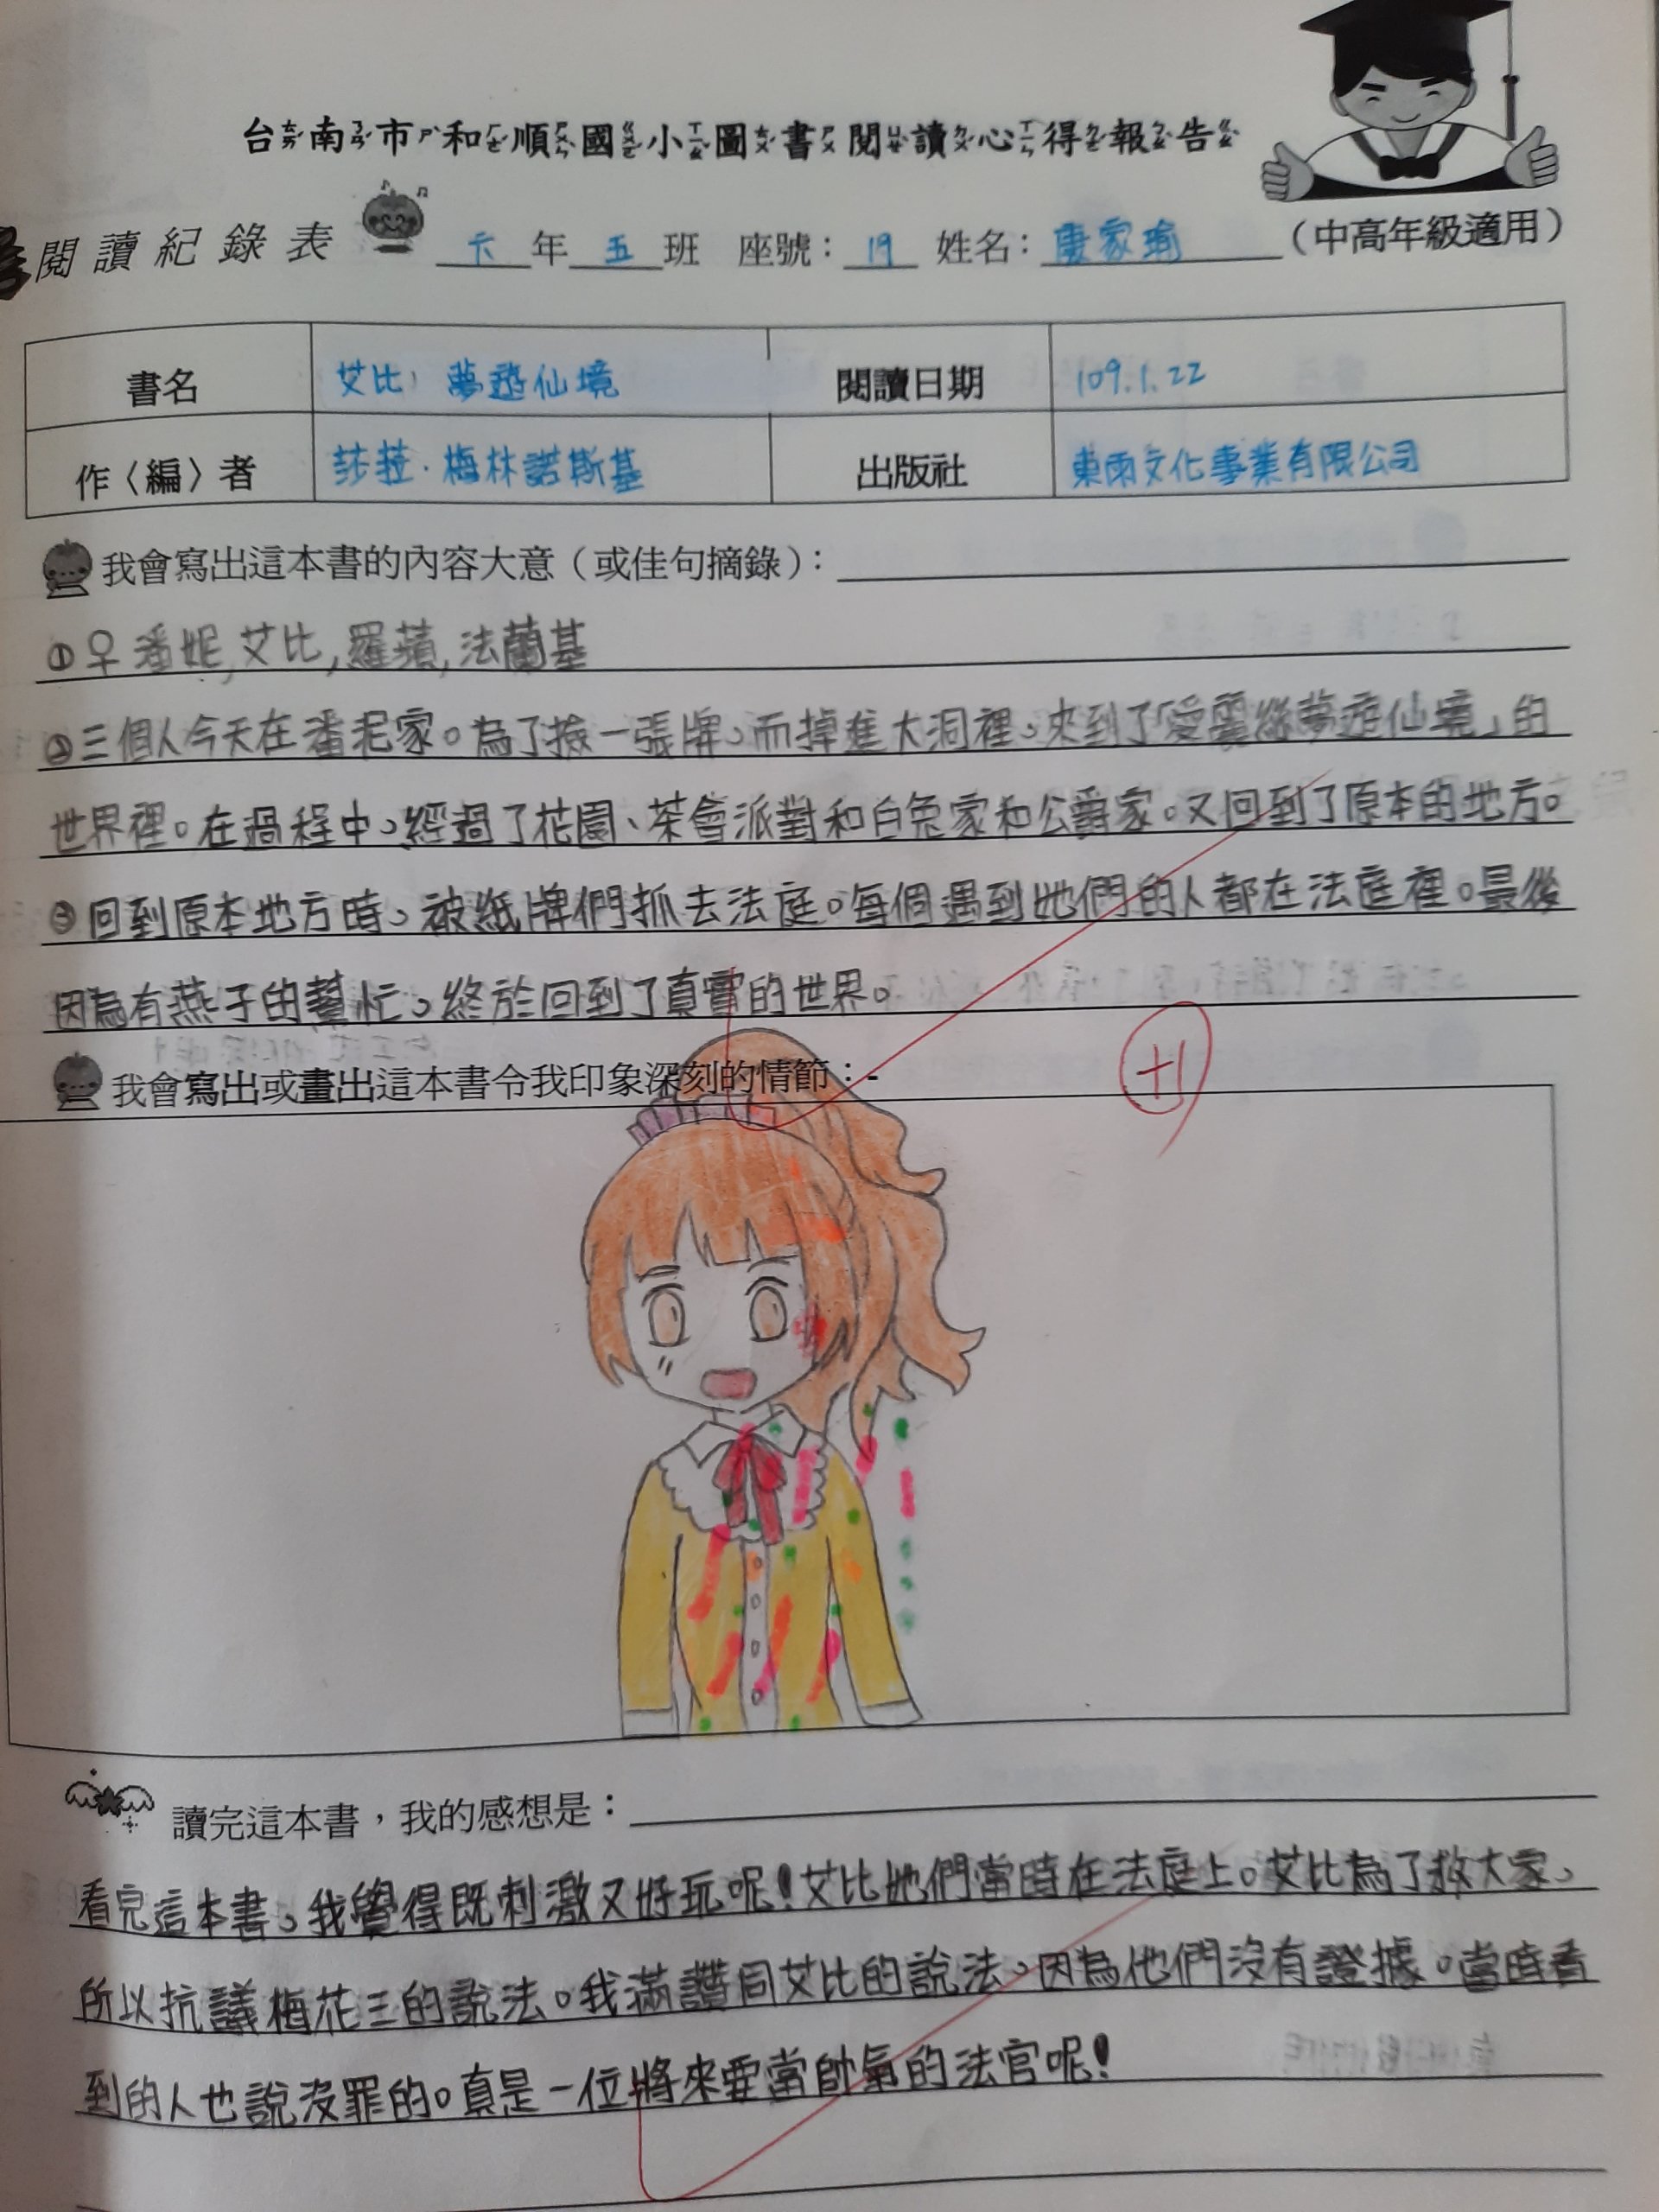 台南市和順國小圖書閱讀心得報告
閱讀紀錄表 六年五班 座號：19 姓名：康家瑜 （中高年級適用）
書名 艾比夢遊仙境 閱讀日期 109.1.22
作〈編〉者 莎菈．梅林諾斯基 出版社 東雨文化事業有限公司
我會寫出這本書的內容大意（或佳句摘錄）：
①♀潘妮,艾比,羅蘋,法蘭基
②三個人今天在潘妮家。為了撿一張牌，而掉進大洞裡，來到了「愛麗絲夢遊仙境」的
世界裡。在過程中，經過了花園、茶會派對和白兔家和公爵家。又回到了原本的地方。
③回到原本地方時，被紙牌們抓去法庭。每個遇到她們的人都在法庭裡。最後
因為有燕子的幫忙，終於回到了真實的世界。
+1
我會寫出或畫出這本書令我印象深刻的情節：-
讀完這本書，我的感想是：
看完這本書，我覺得既刺激又好玩呢！艾比她們當時在法庭上。艾比為了救大家，
所以抗議梅花三的說法。我滿讚同艾比的說法，因為他們沒有證據。當時看
到的人也說沒罪的。真是一位將來要當帥氣的法官呢！